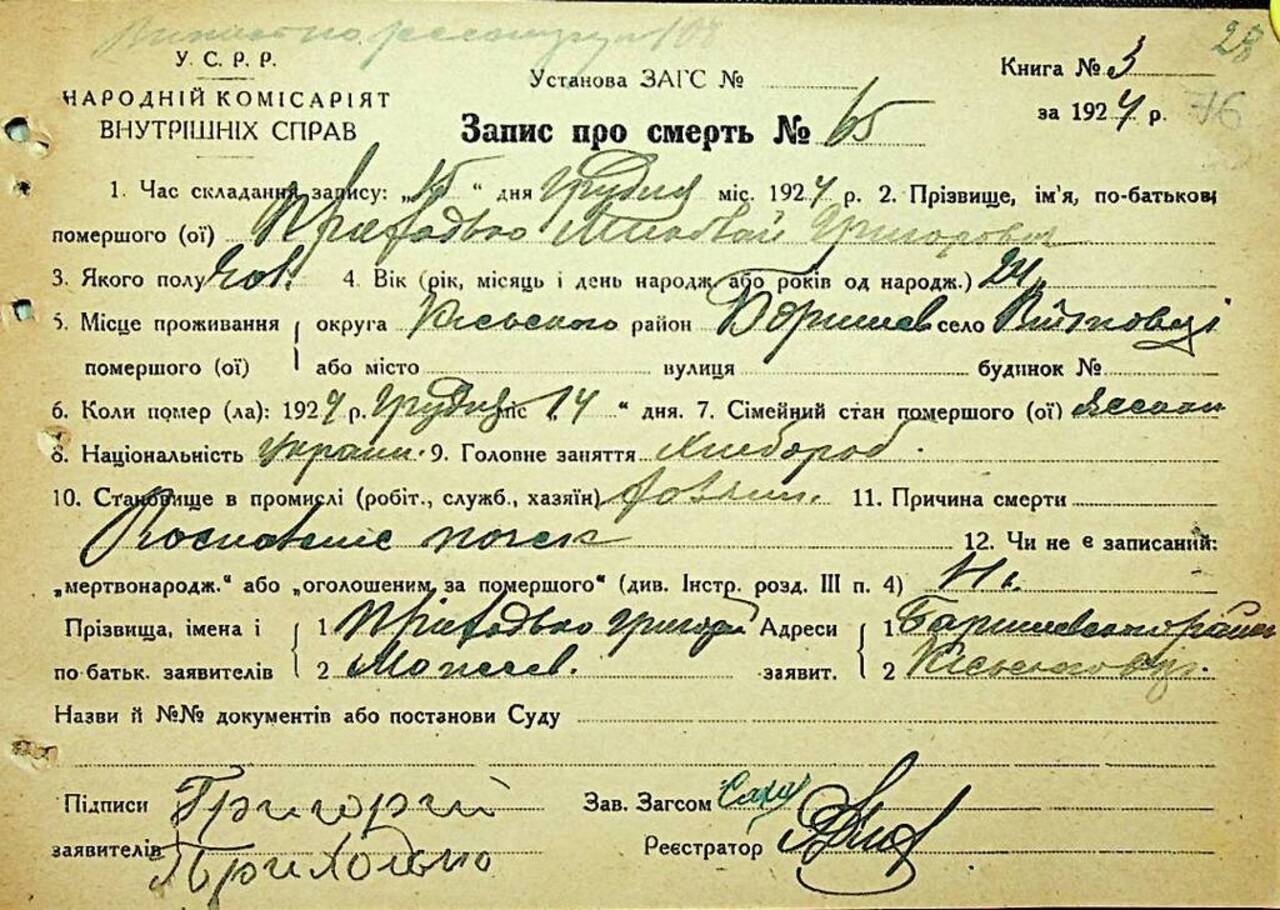 28
У. С. Р. Р.
НАРОДНІЙ КОМІСАРІЯТ
ВНУТРІШНІХ СПРАВ
Установа ЗАГС №
Книга № 3
за 1924 р. 76
Запис про смерть № 65
1. Час складання запису: „15“ дня грудня міс. 1924 р. 2. Прізвище, ім'я, по-батькові
помершого (ої) Приходько Григорович
3. Якого полу чов. 4. Вік (рік, місяць і день народж або років од народж.) 24
5. Місце проживання округа Київського район Баришев село
помершого (ої) або місто вулиця будинок №
6. Коли помер (ла): 1924 р. грудня міс 14 “ дня. 7. Сімейний стан помершого (ої)
8. Національність Україн. 9. Головне заняття Хлібороб.
10. Становище в промислі (робіт., служб., хазяїн) 11. Причина смерти
почек 12. Чи не є записаний:
„мертвонародж.“ або „оголошеним за помершого“ (див. Інстр. розд. III п. 4) Ні.
Прізвища, імена і 1 Приходько Григорій Адреси 1 Баришевського району
по батьк. заявителів 2 заявит. 2 Київського окр.
Назви й №№ документів або постанови Суду
Підписи Григорій Зав. Загсом
заявителів Приходько Реєстратор